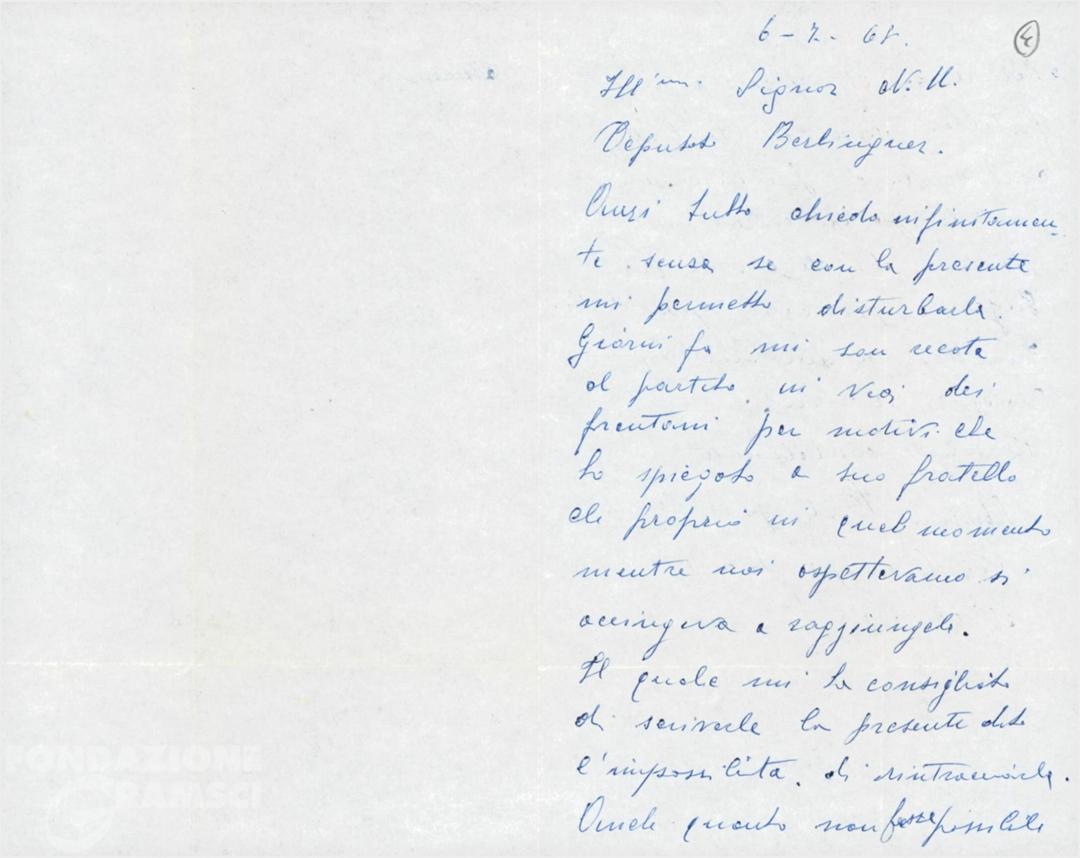 6-7-68.
Ill'mo Signor N.H.
Deputato Berlinguer.
Anzi tutto chiedo infinitamen-
te scusa se con la presente
mi permetto disturbarla.
Giorni fa mi son recata
al partito in via dei
frentani per motivi che
ho spiegato a suo fratello
che proprio in quel momento
mentre noi aspettavamo si
accingeva a raggiungerla.
Il quale mi ha consigliato
di scriverle la presente data
l'impossibilità di rintracciarla.
Anche quanto non fosse possibile
FONDAZIONE
GRAMSCI